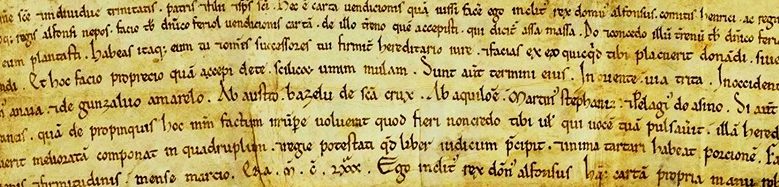 ne sce ⁊ individue trinitatis. patris ⁊ filii ⁊ sps sci. Hec ē carta vendicionis quā iussi facē ego inclit' rex domn' alfonsus. comitis henrici. ac regin
regis alfonsi nepos. facio tibi venditionis cartā. de illo treno quē accepisti. qui dicit assa massa. Do ⁊ concedo illū
cum plantasti. Habeas itaq; eum tu ⁊ omnes successores tui firmit' hereditario iure. ⁊ facias ex eo quicqd tibi placuerit donādi. siue
ndi. Et hoc facio pro precio quā accepi de te. scilicet unum mulam. Sunt aut termini eius. In oriente. uia trita. In occiden
anaia. ⁊ de gunzaluo amarelo. Ab austro. bazelu de scā crux. Ab aquilōe. Martin' stephani. ⁊ pelagi' do asino. Si aut
quā de propinquis hoc mm factum irrūpe voluerit quod fieri non credo tibi ul' qui uocē tuā pulsauit. illā heredi
uerit meliorata componat in quadruplum. ⁊ regie potestati qd liber iudicum pcipit. ⁊ in ima tartari habeat porcionē. Fa
firmitudinis. mense marcio. Era. M. C. Lxxx. Ego inclit' rex dōn' alfonsus hā cartā propria manu